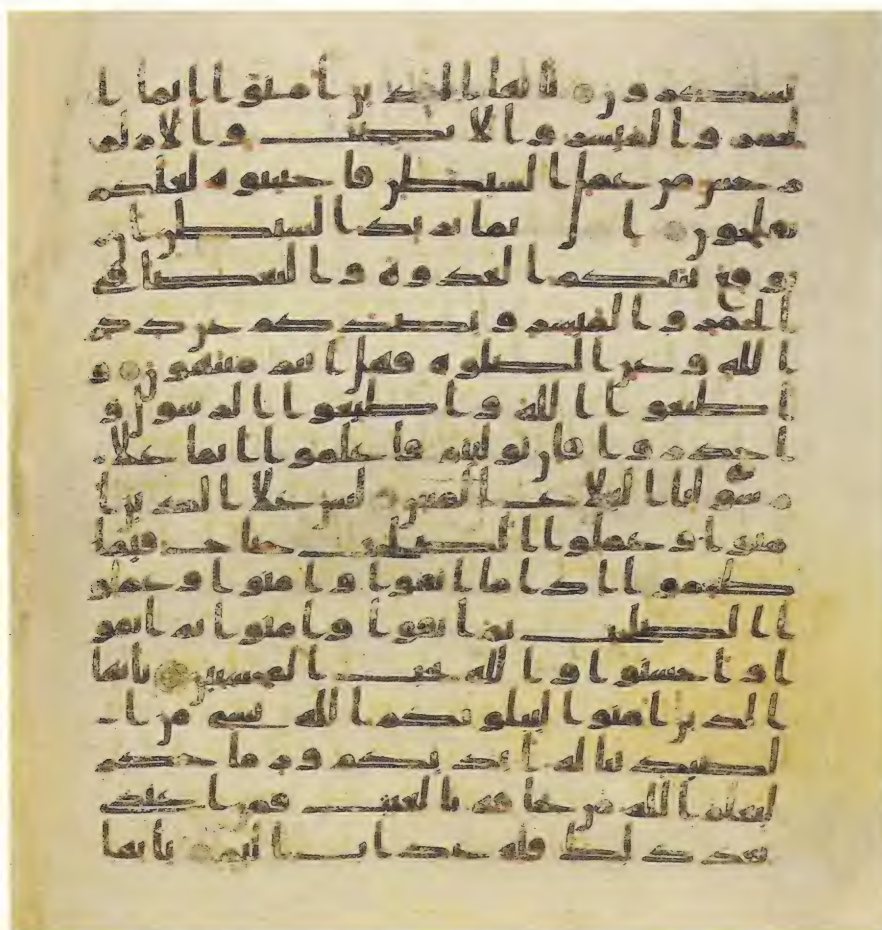 تشكرون يأيها الذين امنوا انما ا
لخمر والميسر والانصب والازلم
رجس من عمل الشيطن فاجتنبوه لعلكم
تفلحون انما يريد الشيطن ان
يوقع بينكم العدوة والبغضا في
الخمر والميسر ويصدكم عن ذكر
الله وعن الصلوه فهل انتم منتهون و
اطيعوا الله واطيعوا الرسول و
احذروا فان توليتم فاعلموا انما علا
رسولنا البلاغ المبين ليس علا الذين ا
منوا وعملوا الصلحت جناح فيما
طعموا اذا ما اتقوا وامنوا وعملو
ا الصلحت ثم اتقوا وامنوا ثم اتقو
ا واحسنوا والله يحب المحسنين يأيها
الذين امنوا ليبلونكم الله بشي من ا
لصيد تناله ايديكم ورماحكم
ليعلم الله من يخافه بالغيب فمن اعتدى
بعد ذلك فله عذاب اليم يأيها